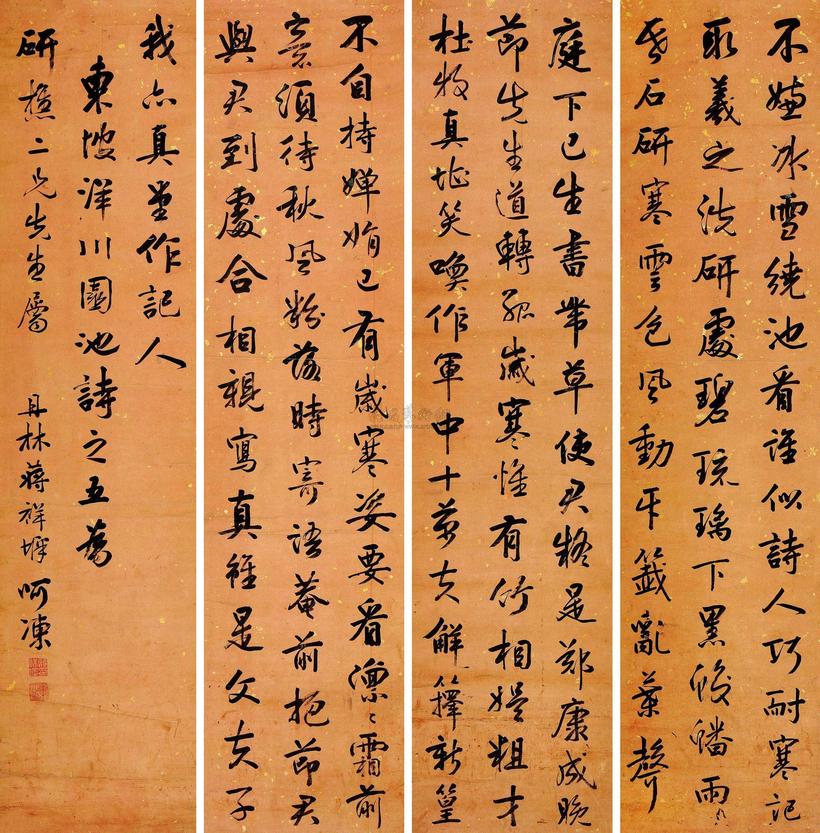 不嫌冰雪繞池看誰似詩人巧耐寒記
取羲之洗研處碧琉璃下黑蛟蟠雨
昏石研寒雲色風動牙籤亂葉聲
庭下已生書帶草使君疑是鄭康成晚
節先生道轉孤歲寒惟有竹相娛粗才
杜牧真堪笑喚作軍中十萬夫解籜新篁
不自持嬋娟已有歲寒姿要看凜〻霜前
意須待秋風粉落時寄語菴前抱節君
與君到處合相親寫真雖是文夫子
我亦真堂作記人
東坡洋川園池詩之五
研樵二兄先生屬 丹林蔣祥墀呵凍